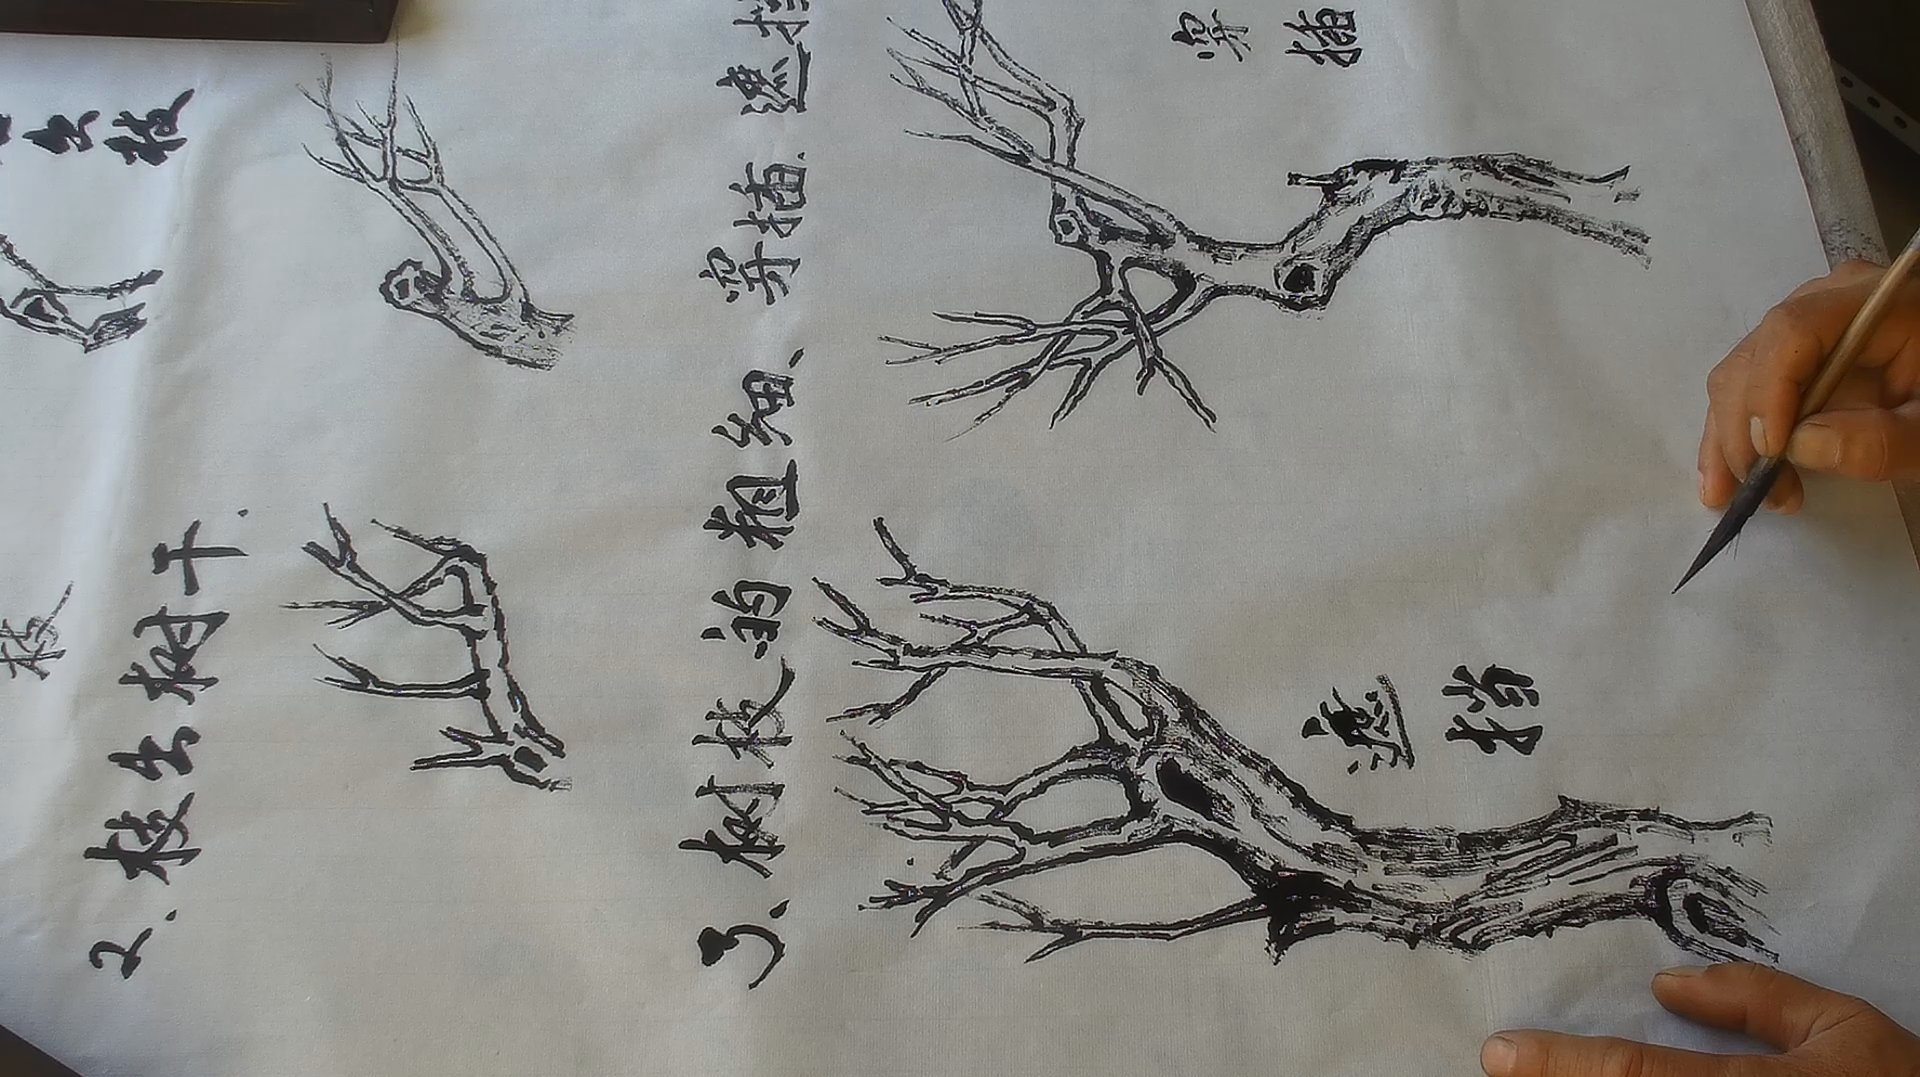 枝
生枝
2.枝生树干.
3.树枝的粗细、穿插.遮挡
遮挡
穿插